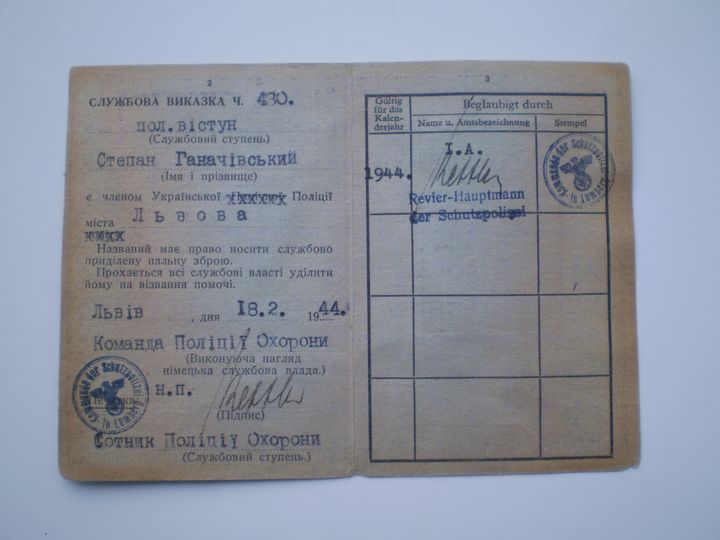 2
СЛУЖБОВА ВИКАЗКА Ч. 430.
пол.вістун
(Службовий ступень)
Степан Ганачівський
(Імя і прізвище)
є членом Української Поліції
міста Львова
Названий має право носити службово
приділену пальну зброю.
Прохається всі службові власті уділити
йому на візвання помочі.
Львів, дня 18.2. 1944.
Команда Поліції Охорони
(Виконуюча нагляд
німецька службова влада.)
Н.П.
(Підпис)
Сотник Поліції Охорони
(Службовий ступень.)
Kommando der Schutzpolizei in Lemberg
3
Gültig
für das
Kalen-
derjahr
Beglaubigt durch
Name u. Amtsbezeichnung
Stempel
1944.
I.A.
Revier-Hauptmann
der Schutzpolizei
Kommando der Schutzpolizei in Lemberg